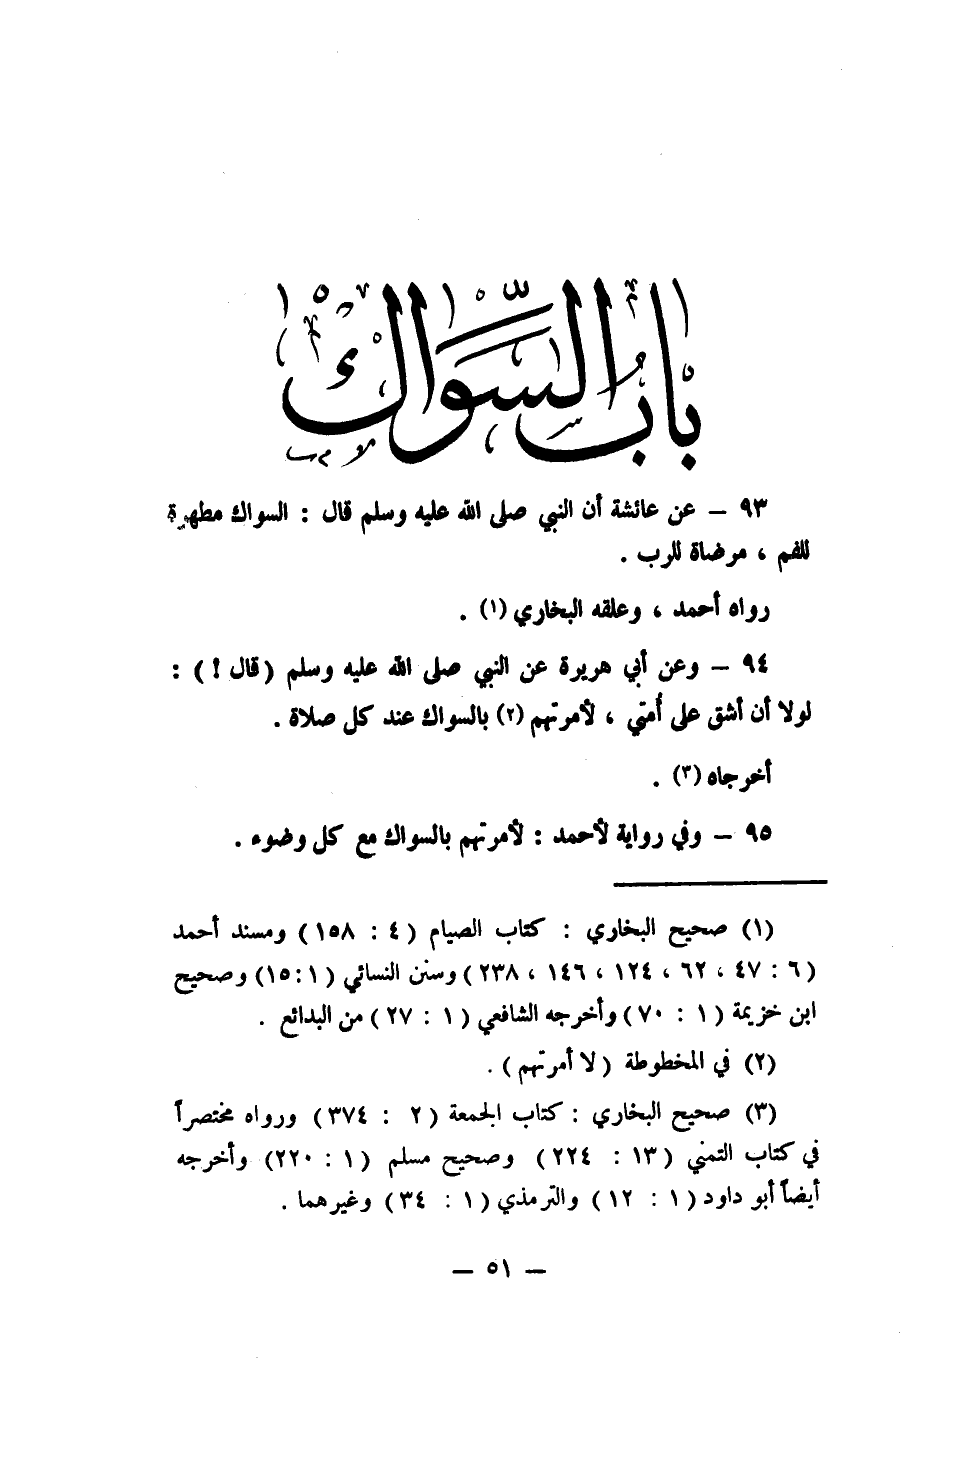 باب السواك
٩٣ – عن عائشة أن النبي صلى الله عليه وسلم قال : السواك مطهرة
للفم ، مرضاة للرب .
رواه أحمد ، وعلقه البخاري (١) .
٩٤ – وعن أبي هريرة عن النبي صلى الله عليه وسلم (قال !) :
لولا أن أشق على أُمتي ، لأمرتهم (٢) بالسواك عند كل صلاة .
أخرجاه (٣) .
٩٥ – وفي رواية لأحمد : لأمرتهم بالسواك مع كل وضوء .
(١) صحيح البخاري : كتاب الصيام (٤ : ١٥٨) ومسند أحمد
(٦ : ٤٧ ، ٦٢ ، ١٢٤ ، ١٤٦ ، ٢٣٨) وسنن النسائي (١ :١٥) وصحيح
ابن خزيمة (١ : ٧٠) وأخرجه الشافعي (١ : ٢٧) من البدائع .
(٢) في المخطوطة (لا أمرتهم) .
(٣) صحيح البخاري : كتاب الجمعة (٢ : ٣٧٤) ورواه مختصراً
في كتاب التمني (١٣ : ٢٢٤) وصحيح مسلم (١ : ٢٢٠) وأخرجه
أيضاً أبو داود (١ : ١٢) والترمذي (١ : ٣٤) وغيرهما .
– ٥١ –